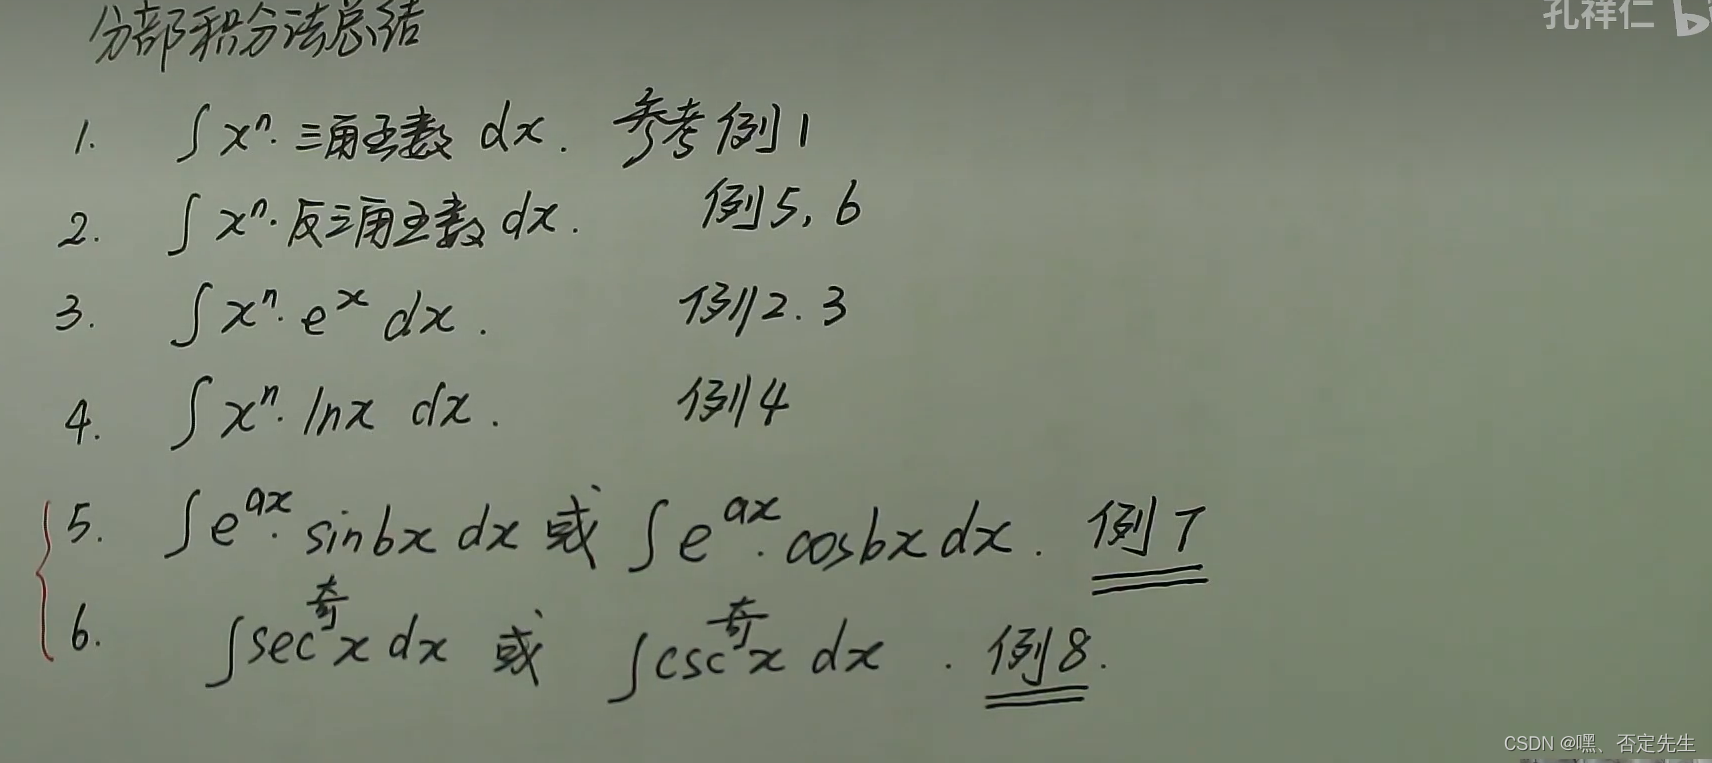 孔祥仁
分部积分法总结
1. ∫ xⁿ· 三角函数 dx. 参考例1
2. ∫ xⁿ· 反三角函数 dx. 例5, 6
3. ∫ xⁿ· eˣ dx. 例2. 3
4. ∫ xⁿ· lnx dx. 例4
5. ∫ e^{ax}· sinbx dx 或 ∫ e^{ax}· cosbx dx. 例7
6. ∫ sec^{奇}x dx 或 ∫ csc^{奇}x dx. 例8.
CSDN @嘿、否定先生